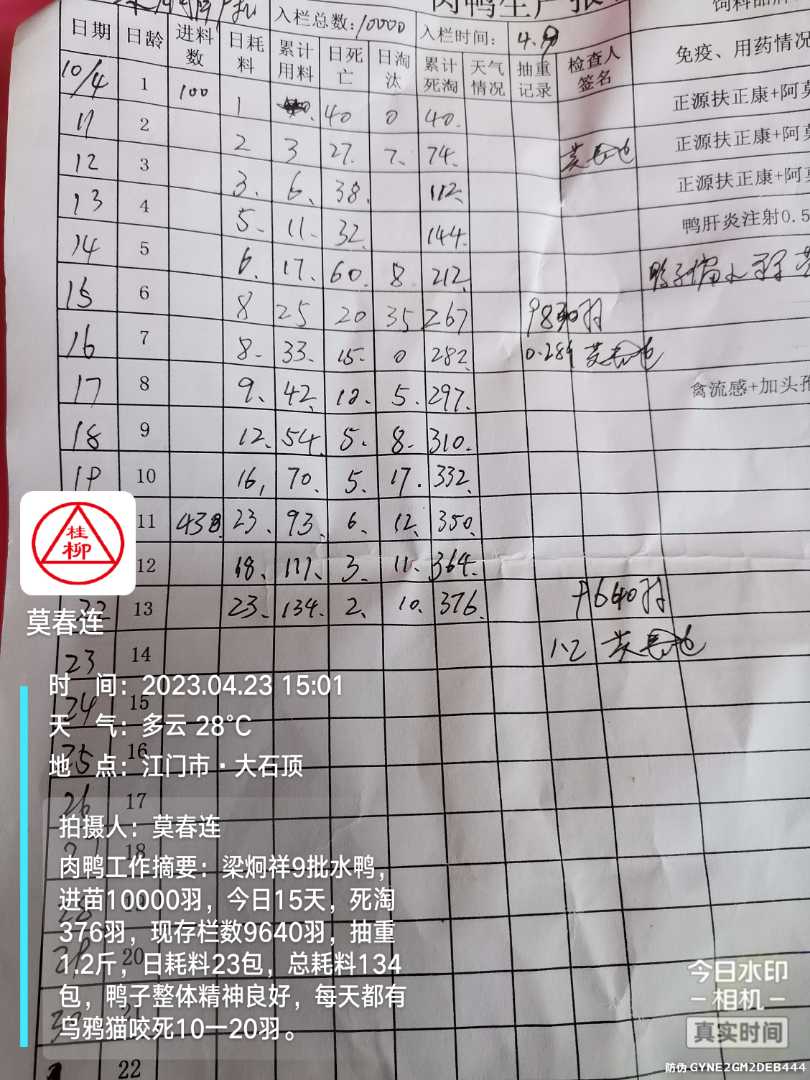 入栏总数:10000 入栏时间: 4.9
日期 日龄 进料数 日耗料 累计用料 日死亡 日淘汰 累计死淘 天气情况 抽重记录 检查人签名 免疫、用药情况
10/4 1 100 1 40 0 40. 正源扶正康+阿莫
11 2 2 3 27. 7. 74. 正源扶正康+阿莫
12 3 3. 6. 38. 112. 正源扶正康+阿莫
13 4 5. 11. 32. 144. 鸭肝炎注射0.5
14 5 6. 17. 60. 8. 212.
15 6 8 25 20 35 267
16 7 8. 33. 15. 0 282.
17 8 9. 42. 10. 5. 297. 禽流感+加头孢
18 9 12. 54. 5. 8. 310.
19 10 16, 70. 5. 17. 332.
11 438 23. 93. 6. 12. 350.
12 18. 111. 3. 11. 364.
22 13 23. 134. 2. 10. 376. 9640羽
23 14 1.2
24 15
25 16
26 17
18
20
22
桂柳
莫春连
时 间：2023.04.23 15:01
天 气：多云 28℃
地 点：江门市·大石顶
拍摄人：莫春连
肉鸭工作摘要：梁炯祥9批水鸭，
进苗10000羽，今日15天，死淘
376羽，现存栏数9640羽，抽重
1.2斤，日耗料23包，总耗料134
包，鸭子整体精神良好，每天都有
乌鸦猫咬死10一20羽。
今日水印
相机
真实时间
防伪 GYNE2GM2DEB444